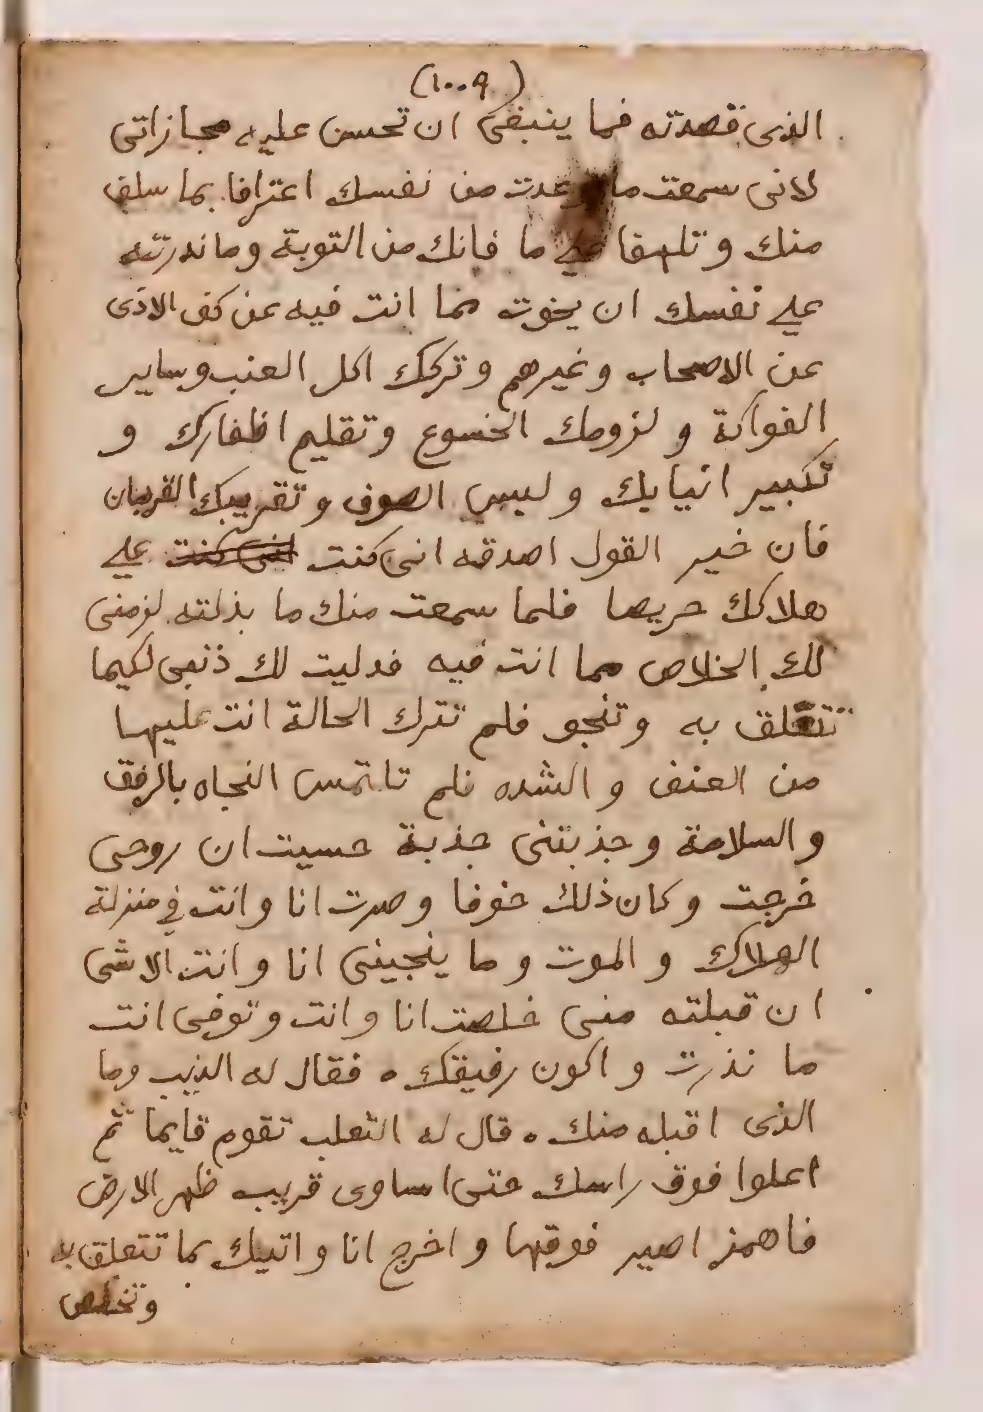 (١٠٠٩)
الذى قصدته فما ينبغى ان تحسن عليه مجازاتى
لانى سمعت ما وعدت من نفسك اعترافا بما سلف
منك وتلهفا على ما فاتك من التوبة وما ندرته
على نفسك ان نجوت مما انت فيه عن كف الاذى
عن الاصحاب وغيرهم وتركك اكل العنب وساير
الفواكة و لزومك الخسوع وتقليم اظفارك و
تكبير انيابك و لبس الصوف وتقريبك القربان
فان خير القول اصدقه انى كنت انى كنت على
هلاكك حريصا فلما سمعت منك ما بذلته لزمنى
لك الخلاص مما انت فيه فدليت لك ذنبى لكيما
تتعلق به وتنجو فلم تترك الحالة انت عليها
من العنف و الشده فلم تلتمس النجاه بالرفق
والسلامة وجذبتنى جذبة حسيت ان روحى
خرجت وكان ذلك خوفا وصرت انا وانت في منزلة
الهلاك و الموت و ما ينجينى انا وانت الا شى
ان قبلته منى خلصت انا وانت وتوفى انت
ما نذرت و اكون رفيقك ه فقال له الذيب وما
الذى اقبله منك ه قال له الثعلب تقوم قايما ثم
اعلوا فوق راسك حتى اساوى قريب ظهر الارض
فاهمز اصير فوقها و اخرج انا واتيك بما تتعلق به
وتخلص